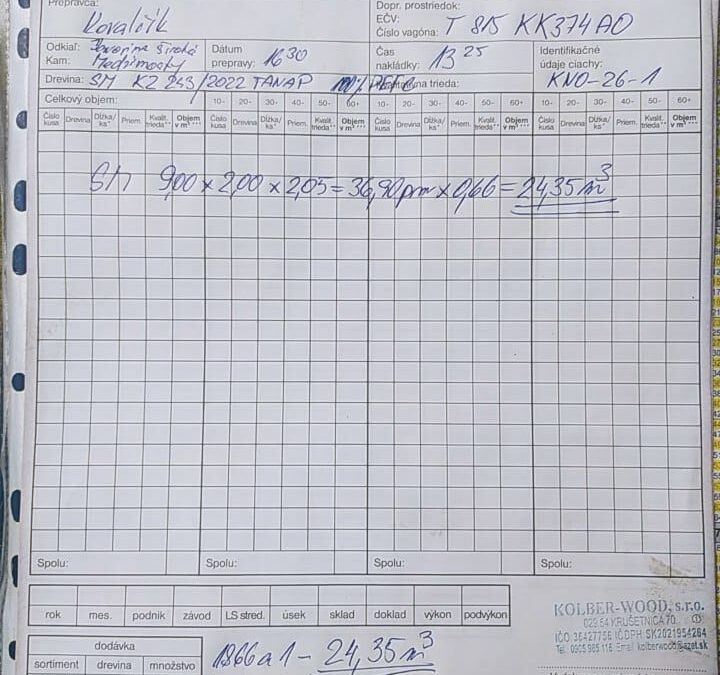 Prepravca:
Kovalčík
Dopr. prostriedok:
EČV:
Číslo vagóna: T 815 KK374AO
Odkiaľ: Javorina Široká
Kam:
Dátum
prepravy: 16³⁰
Čas
nakládky: 13²⁵
Identifikačné
údaje ciachy:
KNO-26-1
Drevina: SM KZ 243/2022 TANAP 100% trieda:
Celkový objem: 10- 20- 30- 40- 50- 60+ 10- 20- 30- 40- 50- 60+ 10- 20- 30- 40- 50- 60+
Číslo kusa Drevina Dĺžka/ ks* Priem. Kvalit. trieda** Objem v m³*** Číslo kusa Drevina Dĺžka/ ks* Priem. Kvalit. trieda** Objem v m³*** Číslo kusa Drevina Dĺžka/ ks* Priem. Kvalit. trieda** Objem v m³*** Číslo kusa Drevina Dĺžka/ ks* Priem. Kvalit. trieda** Objem v m³***
SM 9,00 x 2,00 x 2,05 = 36,90 prm x 0,66 = 24,35 m³
Spolu: Spolu: Spolu: Spolu:
rok mes. podnik závod LS stred. úsek sklad doklad výkon podvýkon
KOLBER-WOOD, s.r.o.
029 54 KRUŠETNICA 70
IČO: 36427756 IČDPH: SK2021954264
Tel.: 0905 565 116 Email: kolberwood@azet.sk
dodávka
sortiment drevina množstvo
1866a1 - 24,35 m³